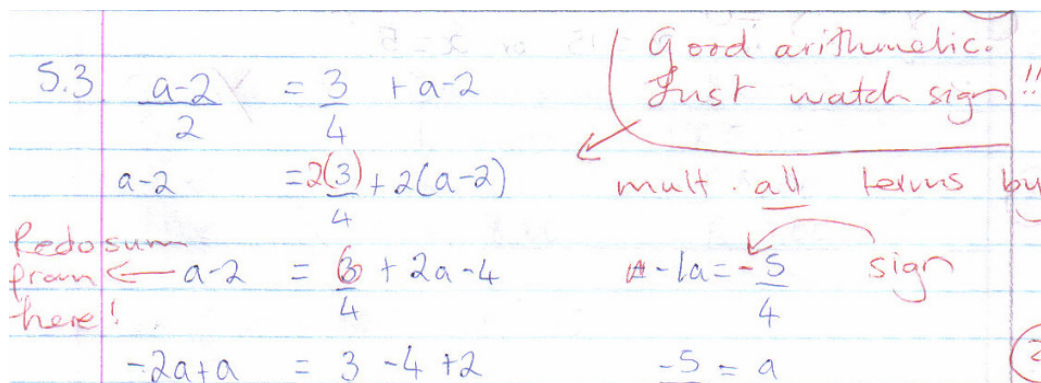 5.3 a-2/2 = 3/4 + a-2
Good arithmetic.
Just watch sign!!
a-2 = 2(3)/4 + 2(a-2)
mult. all terms by
Redo sum from here!
a-2 = 6/4 + 2a-4
-1a = -5/4
sign
-2a+a = 3 -4 +2
-5 = a